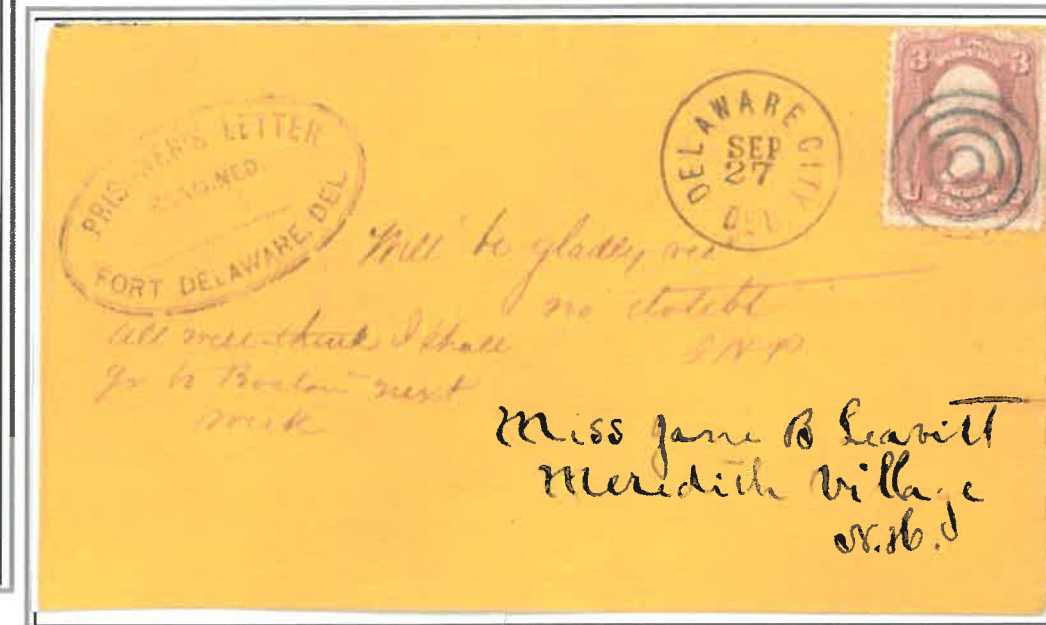 PRISONER'S LETTER
EXAMINED.
FORT DELAWARE, DEL
DELAWARE CITY
SEP
27
DEL.
3 3
Will be gladly
no doubt
All well think I shall
go to Boston next
week
Miss Jane B Leavitt
Meredith Village
N.H.